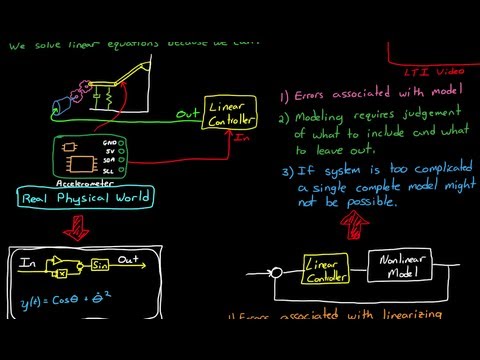 We solve linear equations because we can!
LTI Video
Out
Linear
Controller
In
GND
5V
SDA
SCL
Accelerometer
Real Physical World
1) Errors associated with model
2) Modeling requires judgement
of what to include and what
to leave out.
3) If system is too complicated
a single complete model might
not be possible.
In
x
Sin
Out
y(t) = Cosθ + θ̇²
Linear
Controller
Nonlinear
Model
1) Errors associated with linearizing